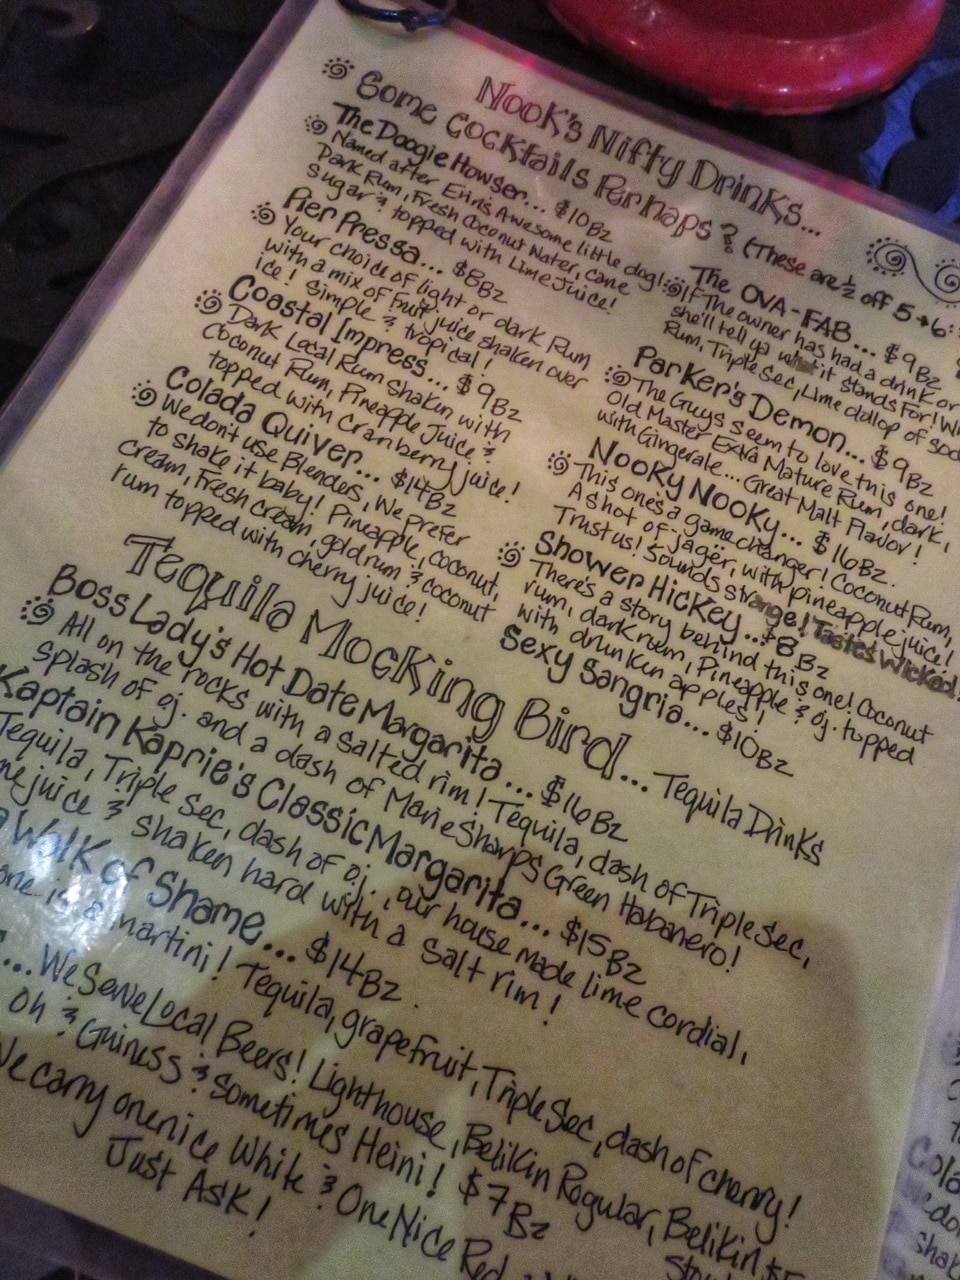 Nook's Nifty Drinks...
Some Cocktails Perhaps? (These are ½ off 5→6:
The Doogie Howser... $10Bz
Named after Erin's Awesome little dog!
Dark Rum, Fresh Coconut Water, cane
sugar & topped with Lime Juice!
Pier Pressa... $8Bz
Your choice of light or dark Rum
with a mix of fruit juice shaken over
ice! Simple & tropical!
Coastal Impress... $9Bz
Dark Local Rum shaken with
Coconut Rum, Pineapple Juice &
topped with Cranberry juice!
Colada Quiver... $14Bz
We don't use Blenders, We prefer
to shake it baby! Pineapple, coconut,
cream, Fresh cream, gold rum & coconut
rum topped with cherry juice!
The OVA-FAB... $9Bz
If The owner has had a drink or
she'll tell ya what it stands For! Wh
Rum, Triple Sec, Lime & dollop of sod
Parker's Demon... $9Bz
The Guys seem to love this one!
Old Master Extra Mature Rum, dark,
with Gingerale... Great Malt Flavor!
Nooky Nooky... $16Bz.
This one's a game changer! Coconut Rum,
A shot of jager, with pineapple juice!
Trust us! Sounds strange! Tastes Wicked!
Shower Hickey... $8Bz
There's a story behind this one! Coconut
rum, dark rum, Pineapple & oj. topped
with drunken apples!
Sexy Sangria... $10Bz
Tequila Mocking Bird... Tequila Drinks
Boss Lady's Hot Date Margarita... $16Bz
All on the rocks with a salted rim! Tequila, dash of Triple Sec,
splash of oj. and a dash of Marie Sharps Green Habanero!
Kaptain Kaprie's Classic Margarita... $15Bz
Tequila, Triple Sec, dash of oj., our house made lime cordial,
juice & shaken hard with a salt rim!
a Walk of Shame... $14Bz.
one is a martini! Tequila, grapefruit, Triple Sec, dash of cherry!
... We Serve Local Beers! Lighthouse, Belikin Regular, Belikin
Oh & Guiness & Sometimes Heini! $7Bz
We carry one nice White & One Nice Red
Just Ask!